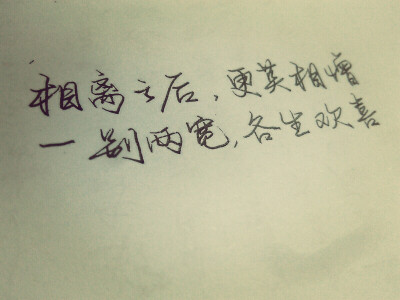 相离之后，更莫相憎
一别两宽，各生欢喜